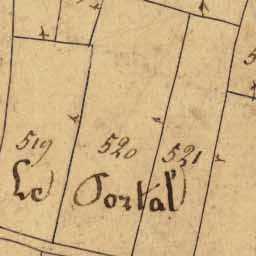 519 520 521
Le Portal